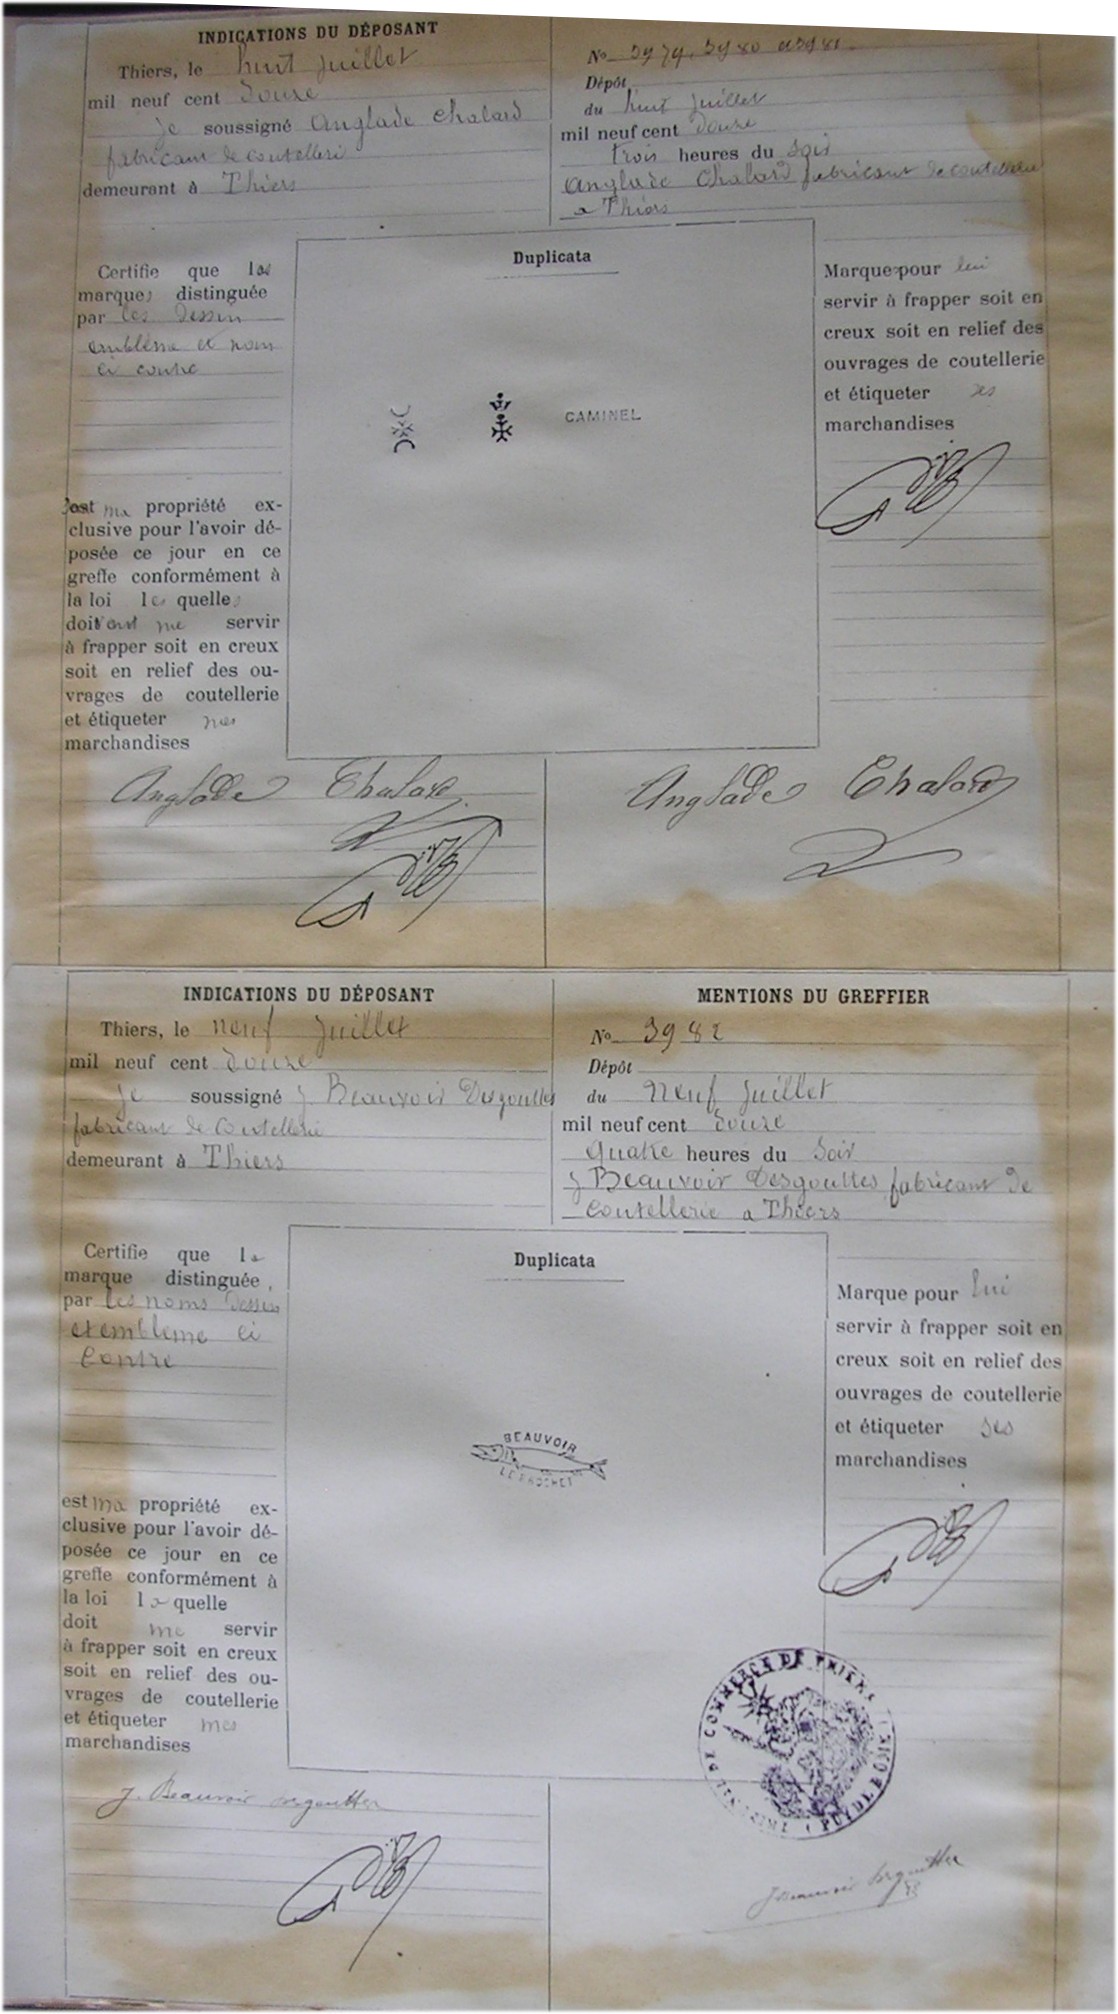 INDICATIONS DU DÉPOSANT
Thiers, le huit juillet
mil neuf cent douze
je soussigné Anglade Chalard
fabricant de coutelleri
demeurant à Thiers
No 3979, 3980 et 3981
Dépôt
du huit juillet
mil neuf cent douze
trois heures du soir
Anglade Chalard fabricant de coutellerie
a Thiers
Certifie que les
marques distinguée
par les dessin
emblème et nom
ci contre
Duplicata
CAMINEL
Marque pour lui
servir à frapper soit en
creux soit en relief des
ouvrages de coutellerie
et étiqueter ses
marchandises
est ma propriété ex-
clusive pour l'avoir dé-
posée ce jour en ce
greffe conformément à
la loi les quelles
doivent me servir
à frapper soit en creux
soit en relief des ou-
vrages de coutellerie
et étiqueter mes
marchandises
Anglade Chalard
Anglade Chalard
INDICATIONS DU DÉPOSANT
Thiers, le neuf juillet
mil neuf cent douze
je soussigné J Beauvoir Desgouttes
fabricant de coutellerie
demeurant à Thiers
MENTIONS DU GREFFIER
No 3982
Dépôt
du neuf juillet
mil neuf cent douze
quatre heures du soir
J Beauvoir Desgouttes fabricant de
coutellerie a Thiers
Certifie que la
marque distinguée
par les noms dessin
et emblème ci
contre
Duplicata
BEAUVOIR
LE BROCHET
Marque pour lui
servir à frapper soit en
creux soit en relief des
ouvrages de coutellerie
et étiqueter ses
marchandises
est ma propriété ex-
clusive pour l'avoir dé-
posée ce jour en ce
greffe conformément à
la loi la quelle
doit me servir
à frapper soit en creux
soit en relief des ou-
vrages de coutellerie
et étiqueter mes
marchandises
DE COMMERCE DE THIERS
PUY DE DÔME
J. Beauvoir Desgouttes
J Beauvoir Desgouttes